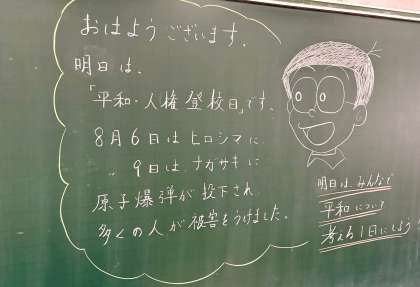 おはようございます.
明日は、
「平和・人権登校日」です。
8月6日はヒロシマに
〃 9日はナガサキに
原子爆弾が投下され
多くの人が被害をうけました。
明日は、みんなで
平和について
考える1日にしよう